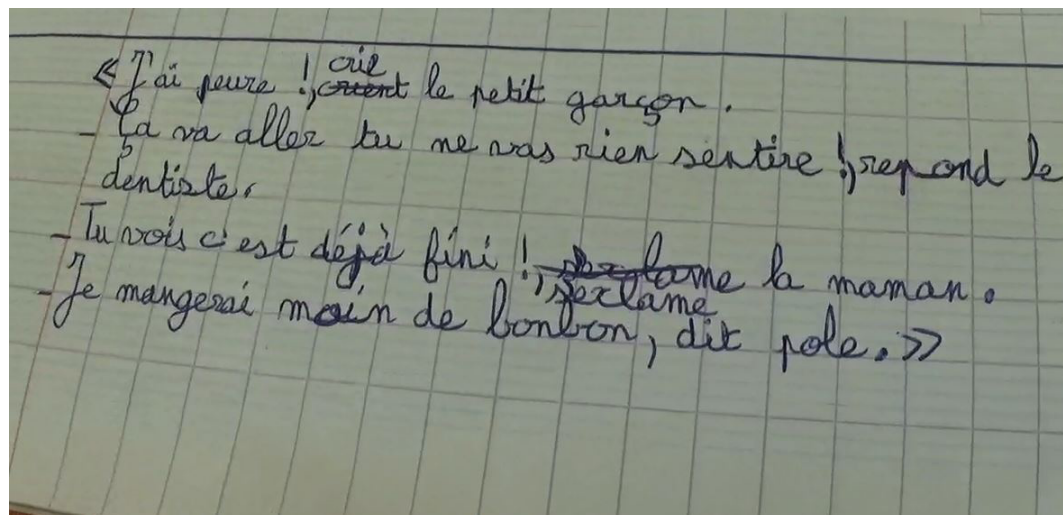 « J'ai peure !, crie le petit garçon.
- ça va aller tu ne vas rien sentire !, repond le
dentiste.
- Tu vois c'est déjà fini !, s'exlame la maman.
- Je mangerai moin de bonbon, dit pole. »